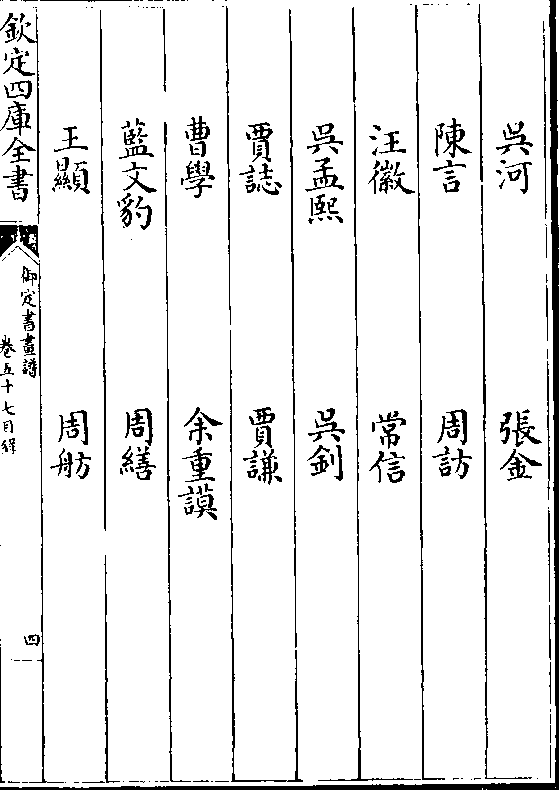 吳河　張金
陳言　周訪
汪徽　常信
吳孟熙　吳釗
賈誌　賈謙
曹學　余重謨
藍文豹　周繕
王顯　周舫
欽定四庫全書
御定書畫譜
卷五十七目錄
四